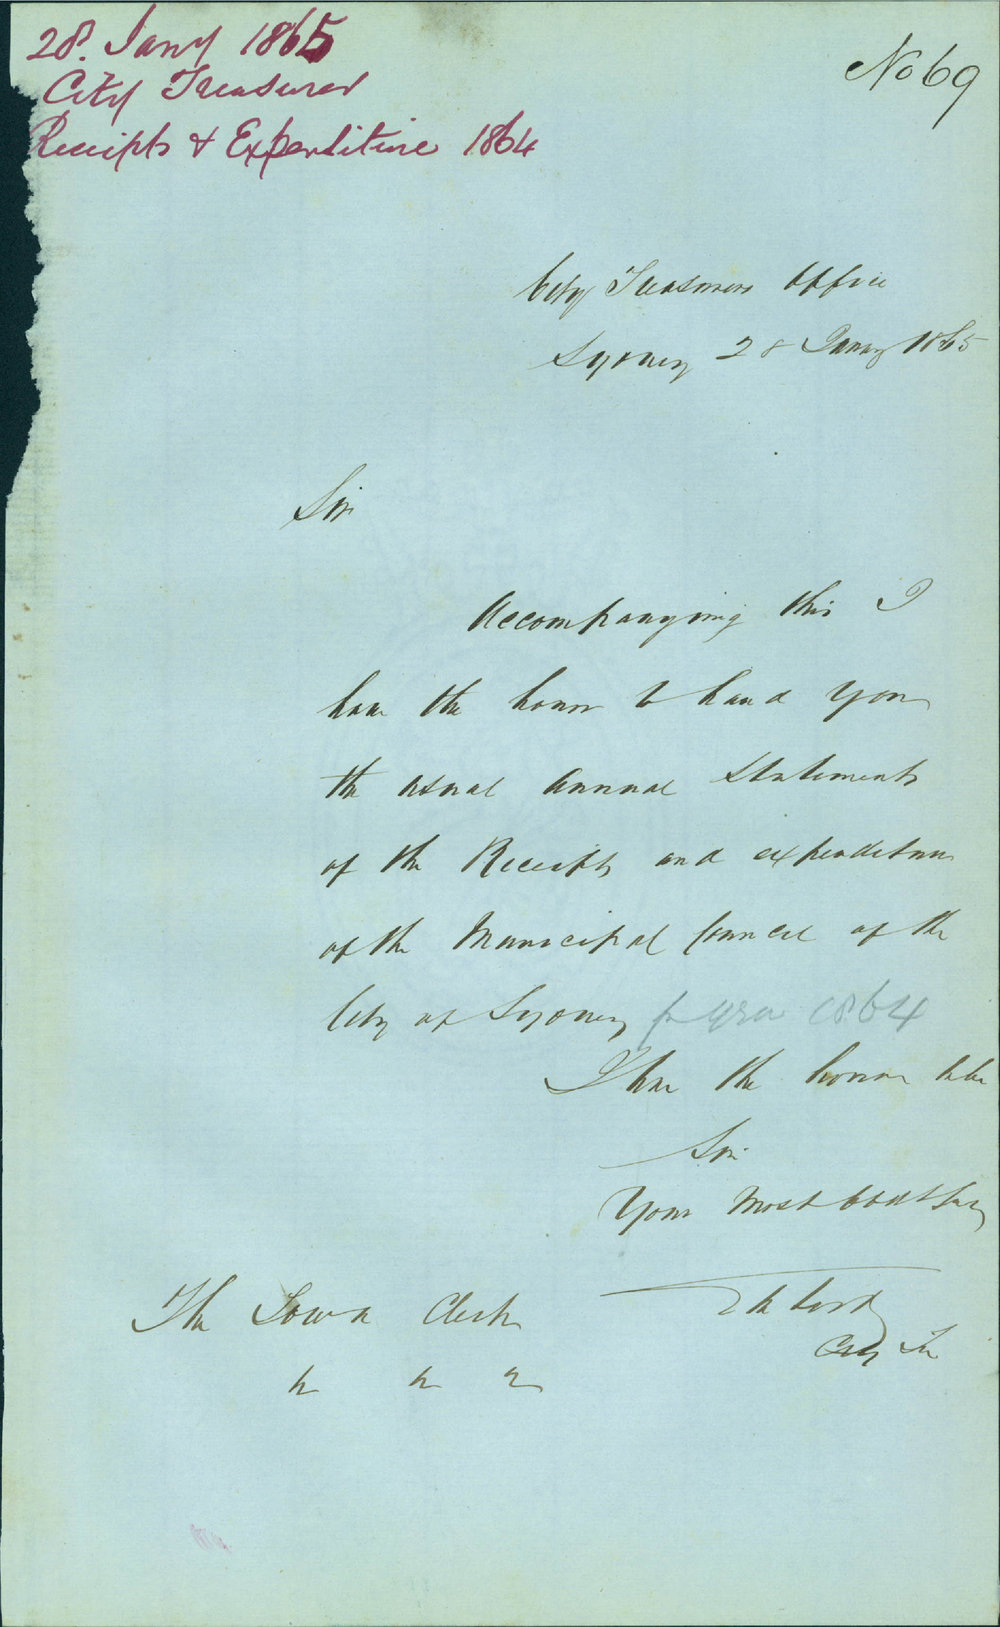 28. Jany 1865
City Treasurer
Receipts & Expenditure 1864
No 69
City Treasurers Office
Sydney 28 Janay 1865
Sir
Accompanying this I
have the honor to hand you
the usual annual statements
of the Receipts and expenditure
of the Municipal Council of the
City of Sydney for year 1864
I have the honor to be
Sir
Your Most Obdt Serv
The Town Clerk
City Tr